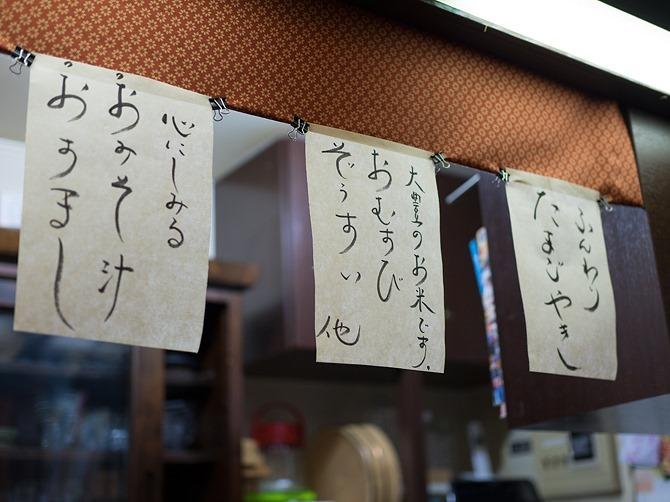 心にしみる
おみそ汁
おすまし
大豊のお米です。
おむすび
ぞうすい 他
ふんわり
たまごやき